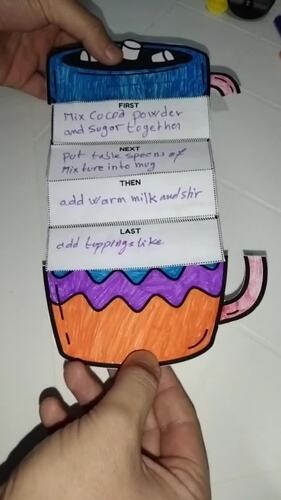 FIRST
Mix Cocoa powder
and sugar together
NEXT
Put table spoons of
Mixture into mug
THEN
add warm milk and stir
LAST
add toppings like